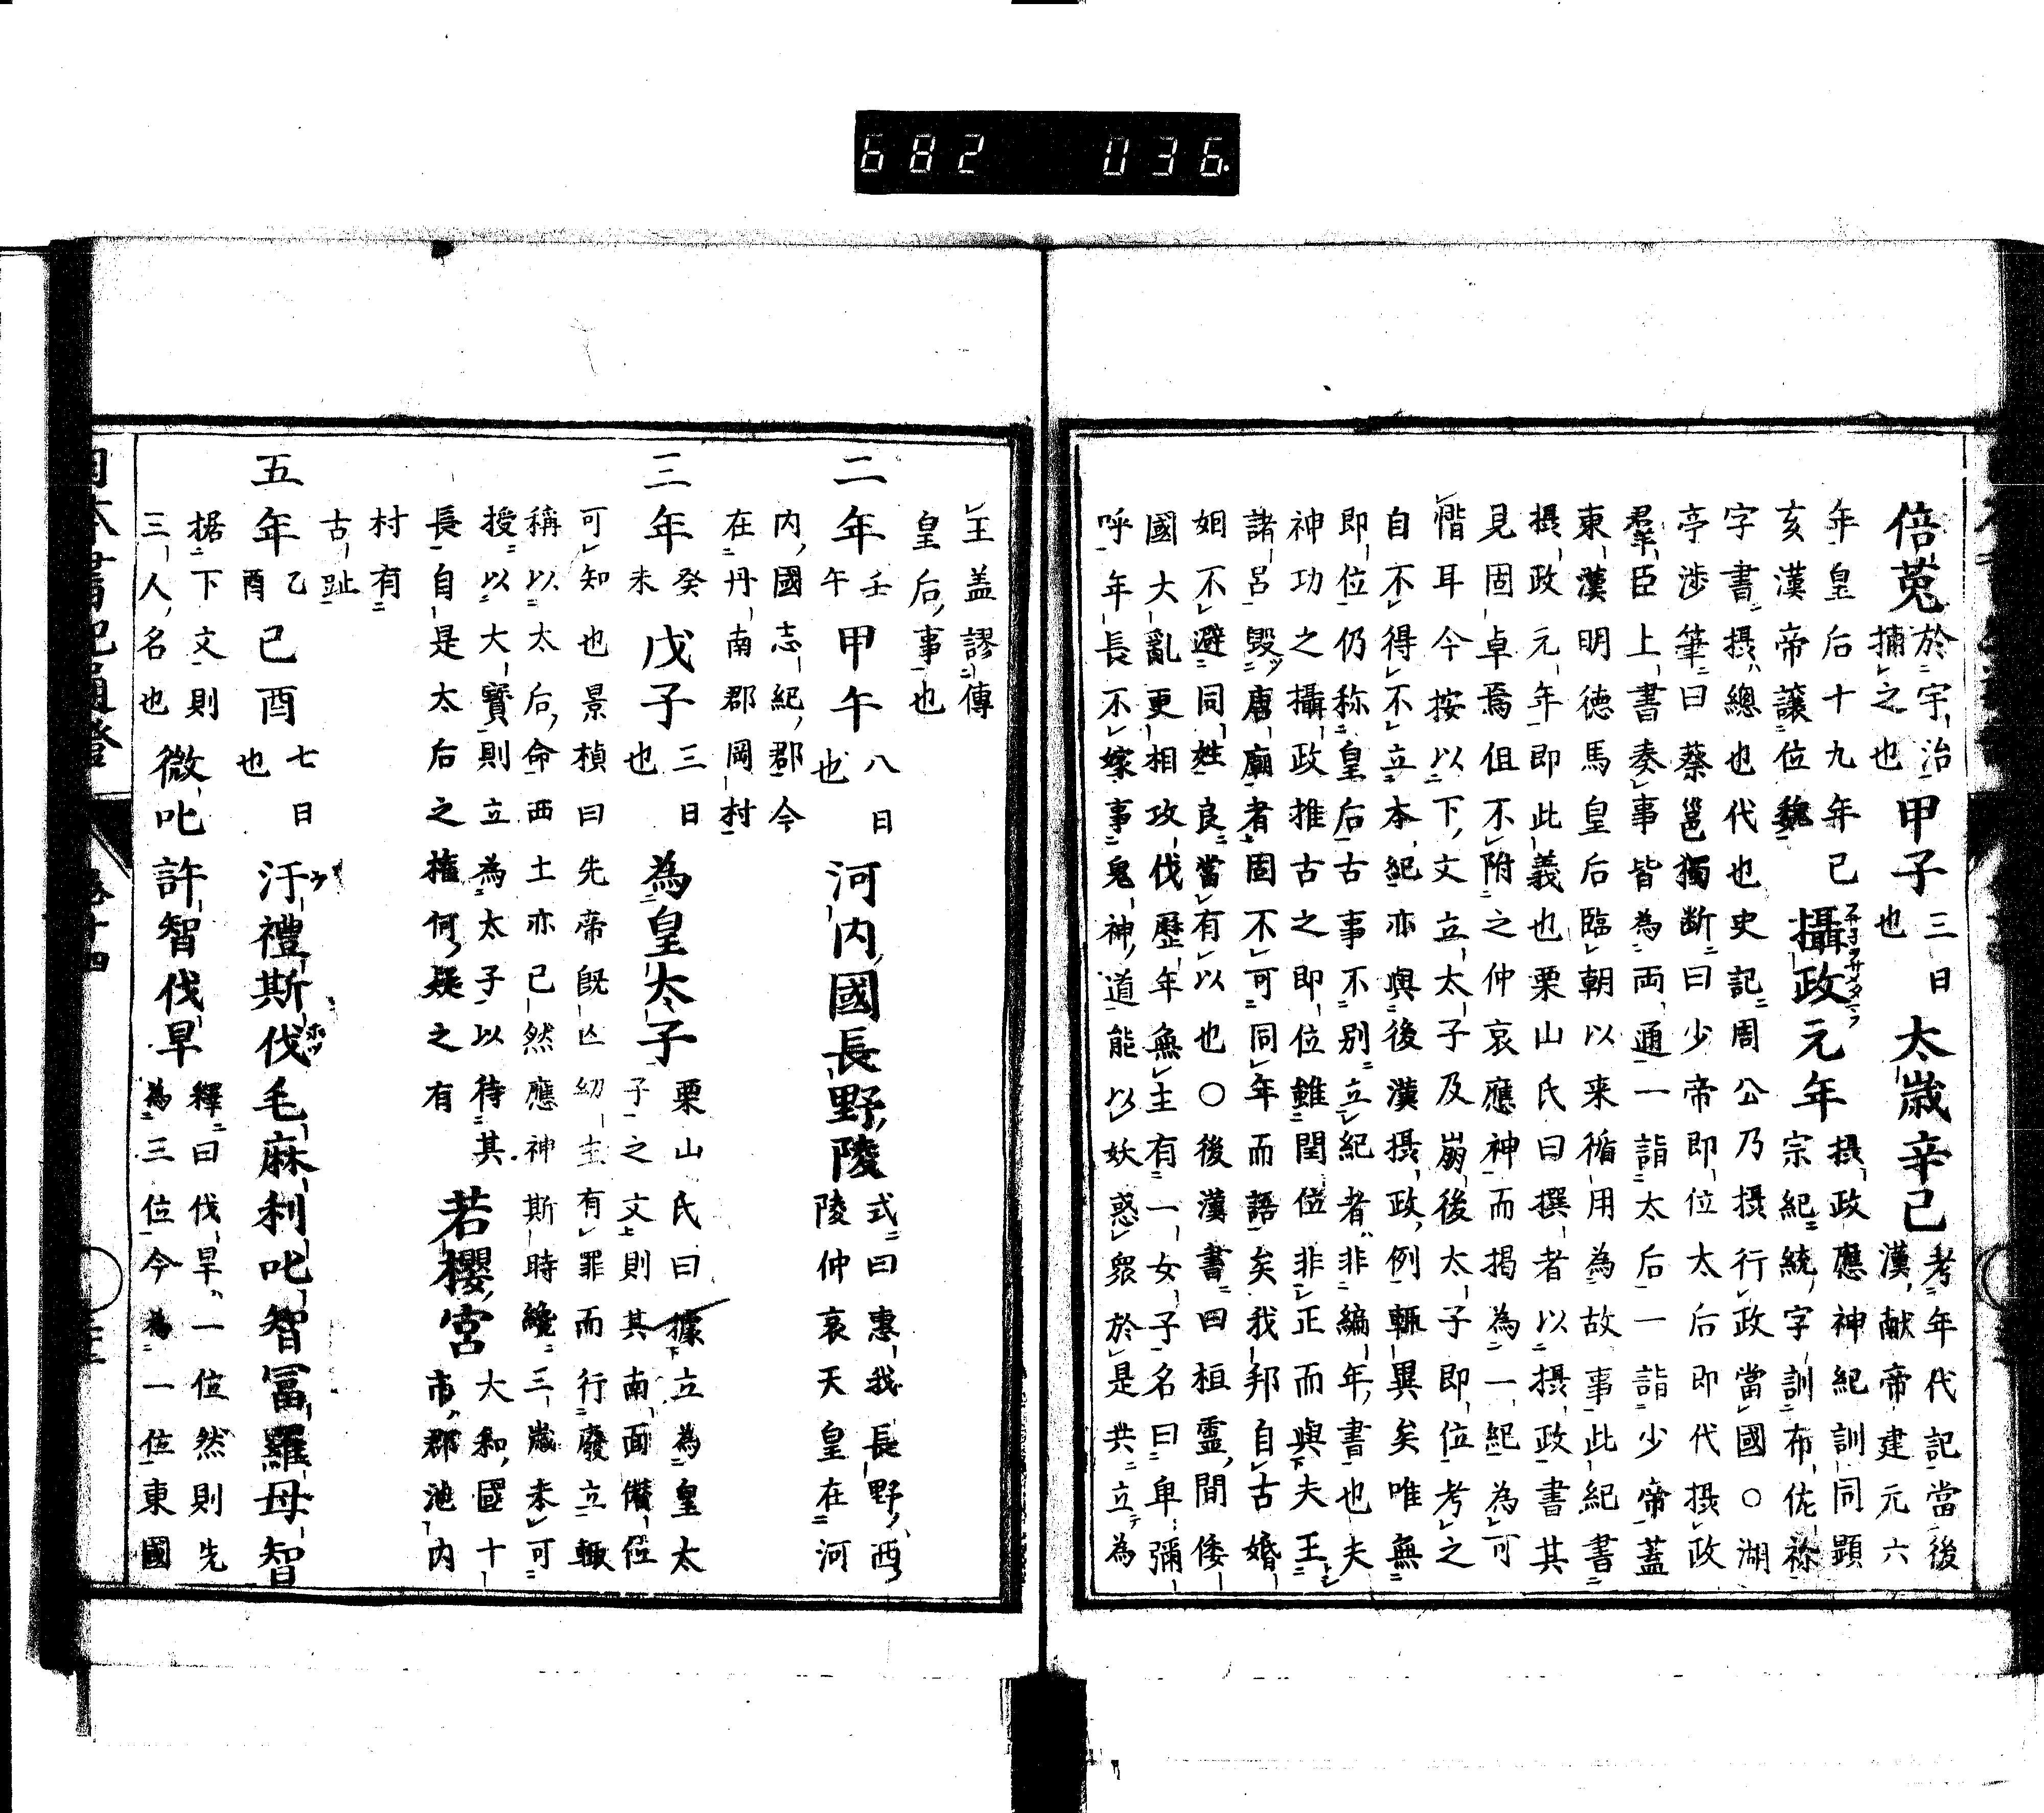 682 036
倍菟於宇治捕之也甲子三日也太歳辛已考年代記當後漢献帝建元六
年皇后十九年已亥漢帝讓位魏攝政元年摂政應神紀訓同顕宗紀統字訓布佐祢
字書摂總也代也史記周公乃摂行政當國○湖
亭渉筆曰蔡邕獨断曰少帝即位太后即代摂政
羣臣上書奏事皆為両通一詣太后一詣少帝蓋
東漢明德馬皇后臨朝以来循用為故事此紀書
摂政元年即此義也栗山氏曰撰者以摂政書其
見固卓焉伹不附之仲哀應神而掲為一紀為可
惜耳今按以下文立太子及崩後太子即位考之
自不得不立本紀亦與後漢摂政例輒異矣唯無
即位仍称皇后古事不別立紀者非編年書也夫
神功之攝政推古之即位雖閏位非正而與夫王
諸呂毀唐廟者固不可同年而語矣我邦自古婚
姻不避同姓良當有以也○後漢書曰桓霊間倭
國大亂更相攻伐歴年無主有一女子名曰卑彌
呼年長不嫁事鬼神道能以妖惑衆於是共立為
王盖謬傳
皇后事也
二年壬午甲午八日也河内國長野陵式曰惠我長野西陵仲哀天皇在河
内國志紀郡今
在丹南郡岡村
三年癸未戊子三日也為皇太子栗山氏曰據立為皇太子之文則其南面僭位
可知也景楨曰先帝既亡幼主有罪而行廢立輙
稱以太后命西土亦已然應神斯時纔三歳未可
授以大寳則立為太子以待其
長自是太后之権何疑之有若櫻宮大和國十市郡池内
村有
古趾
五年乙酉己酉七日也汙禮斯伐毛麻利叱智冨羅母智
据下文則
三人名也微叱許智伐旱釋曰伐旱一位然則先為三位今為一位東國